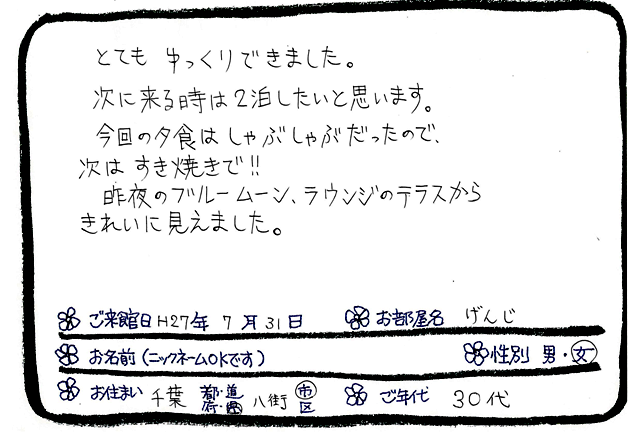 とても ゆっくりできました。
次に来る時は2泊したいと思います。
今回の夕食はしゃぶしゃぶだったので、
次は すき焼きで!!
昨夜のブルームーン、ラウンジのテラスから
きれいに見えました。
ご来館日 H27年 7月31日 お部屋名 げんじ
お名前(ニックネームOKです) 性別 男・女
お住まい 千葉 都・道・府・県 八街 市区 ご年代 30代